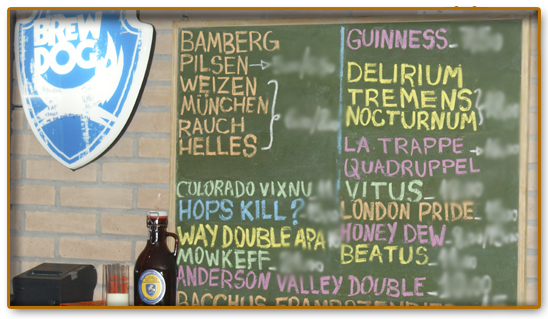 BREW
DOG
BAMBERG
PILSEN→
WEIZEN
MÜNCHEN
RAUCH
HELLES
COLORADO VIXNU
HOPS KILL?
WAY DOUBLE APA
MOWKEFF
ANDERSON VALLEY DOUBLE
GUINNESS
DELIRIUM
TREMENS
NOCTURNUM
LA TRAPPE
QUADRUPPEL
VITUS
LONDON PRIDE
HONEY DEW
BEATUS
BACCHUS